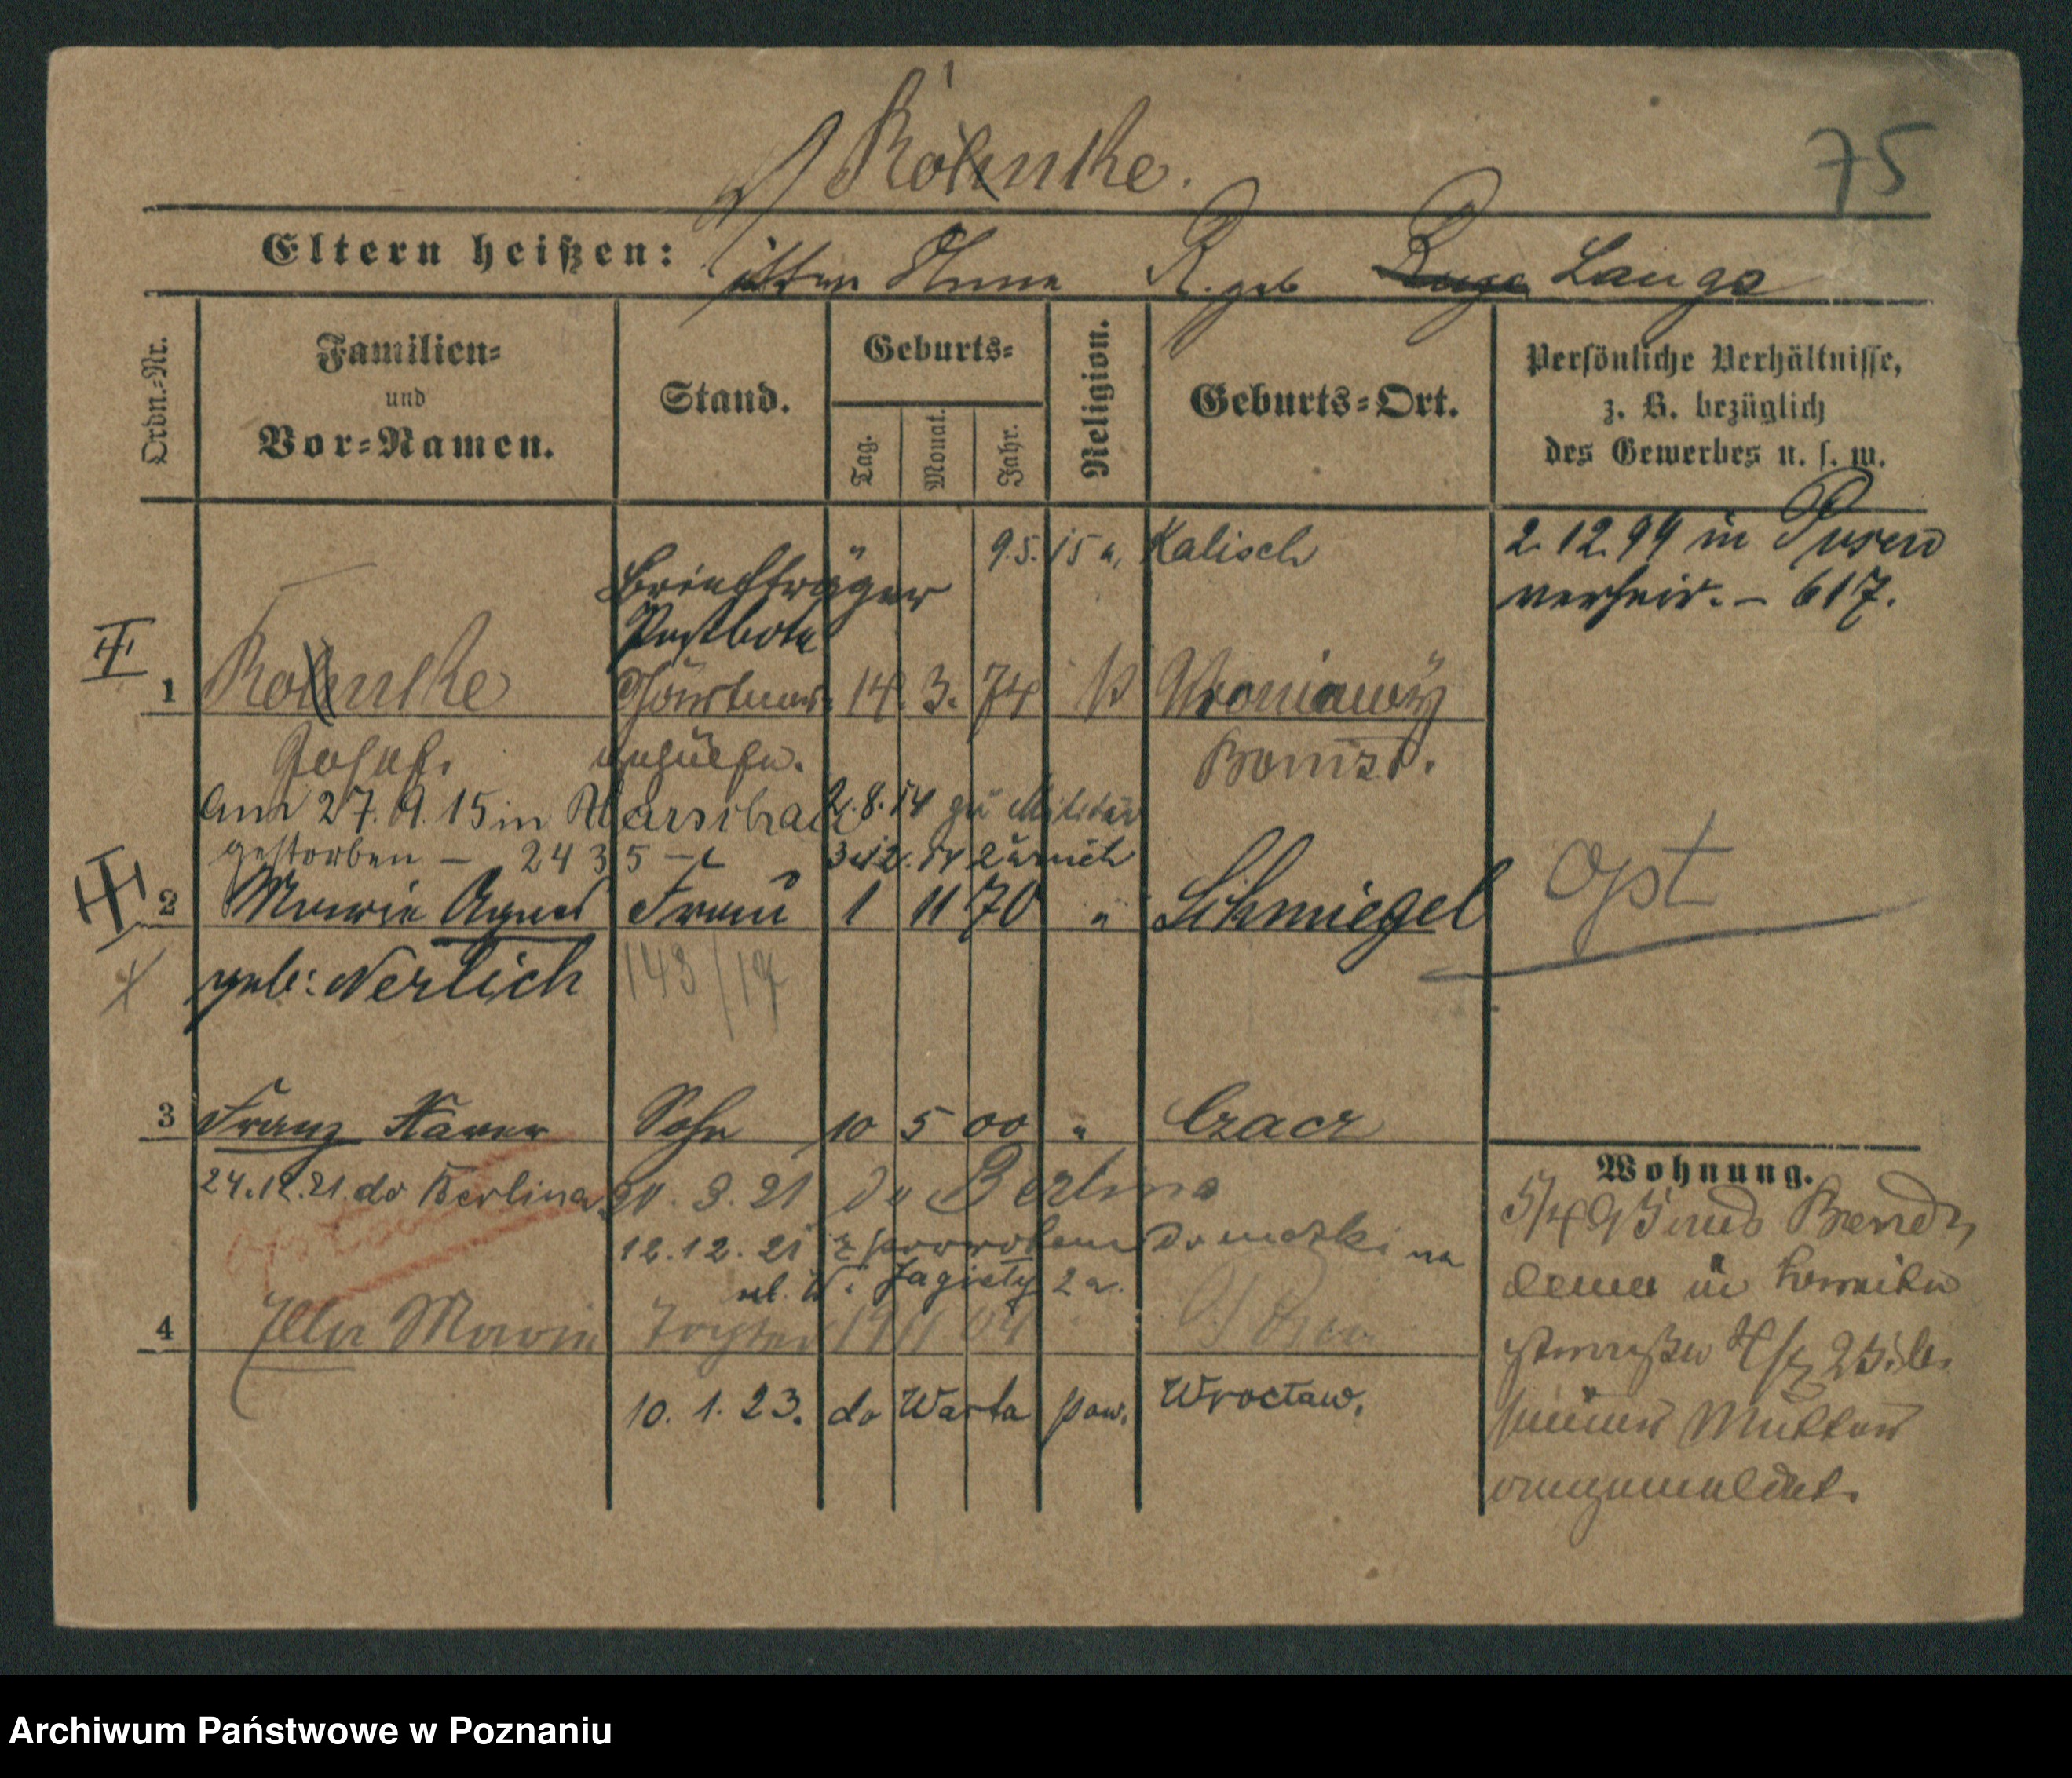 Röhnke.
75
Eltern heißen:
R. geb Lange
Ordn.=Nr.
Familien=
und
Vor=Namen.
Stand.
Geburts=
Tag.
Monat.
Jahr.
Religion.
Geburts=Ort.
Persönliche Verhältnisse,
z. B. bezüglich
des Gewerbes u. s. w.
" 9.5.15 a, Kalisch
2. 12. 99 in Posen
verheir. – 617.
Briefträger
Postbote
1 Röhnke Gärtner 14. 3. 74 k Wroniawy
Josef. gehülfe. Bomst.
Am 27.9.15 in gestorben – 2435 –
2.8.14 zu Militär
3.12.14 zurück
2 Marie Agnes Frau 1 11 70 " Schmiegel
Opt
geb: Nerlich 143/19
3 Franz Xaver Sohn 10 5 00 " Czacz
24.12.21. do Berlina
21. 3. 21 do Berlina
12.12.21 z powrotem do matki na
ul. W. Jagiełły 2a.
4 Ella Maria Tochter 19 11 04 Posen
10. 1. 23. do Warta pow. Wrocław.
Wohnung.
in Breiten
straße 25 bei
seiner Mutter
angemeldet.
Archiwum Państwowe w Poznaniu